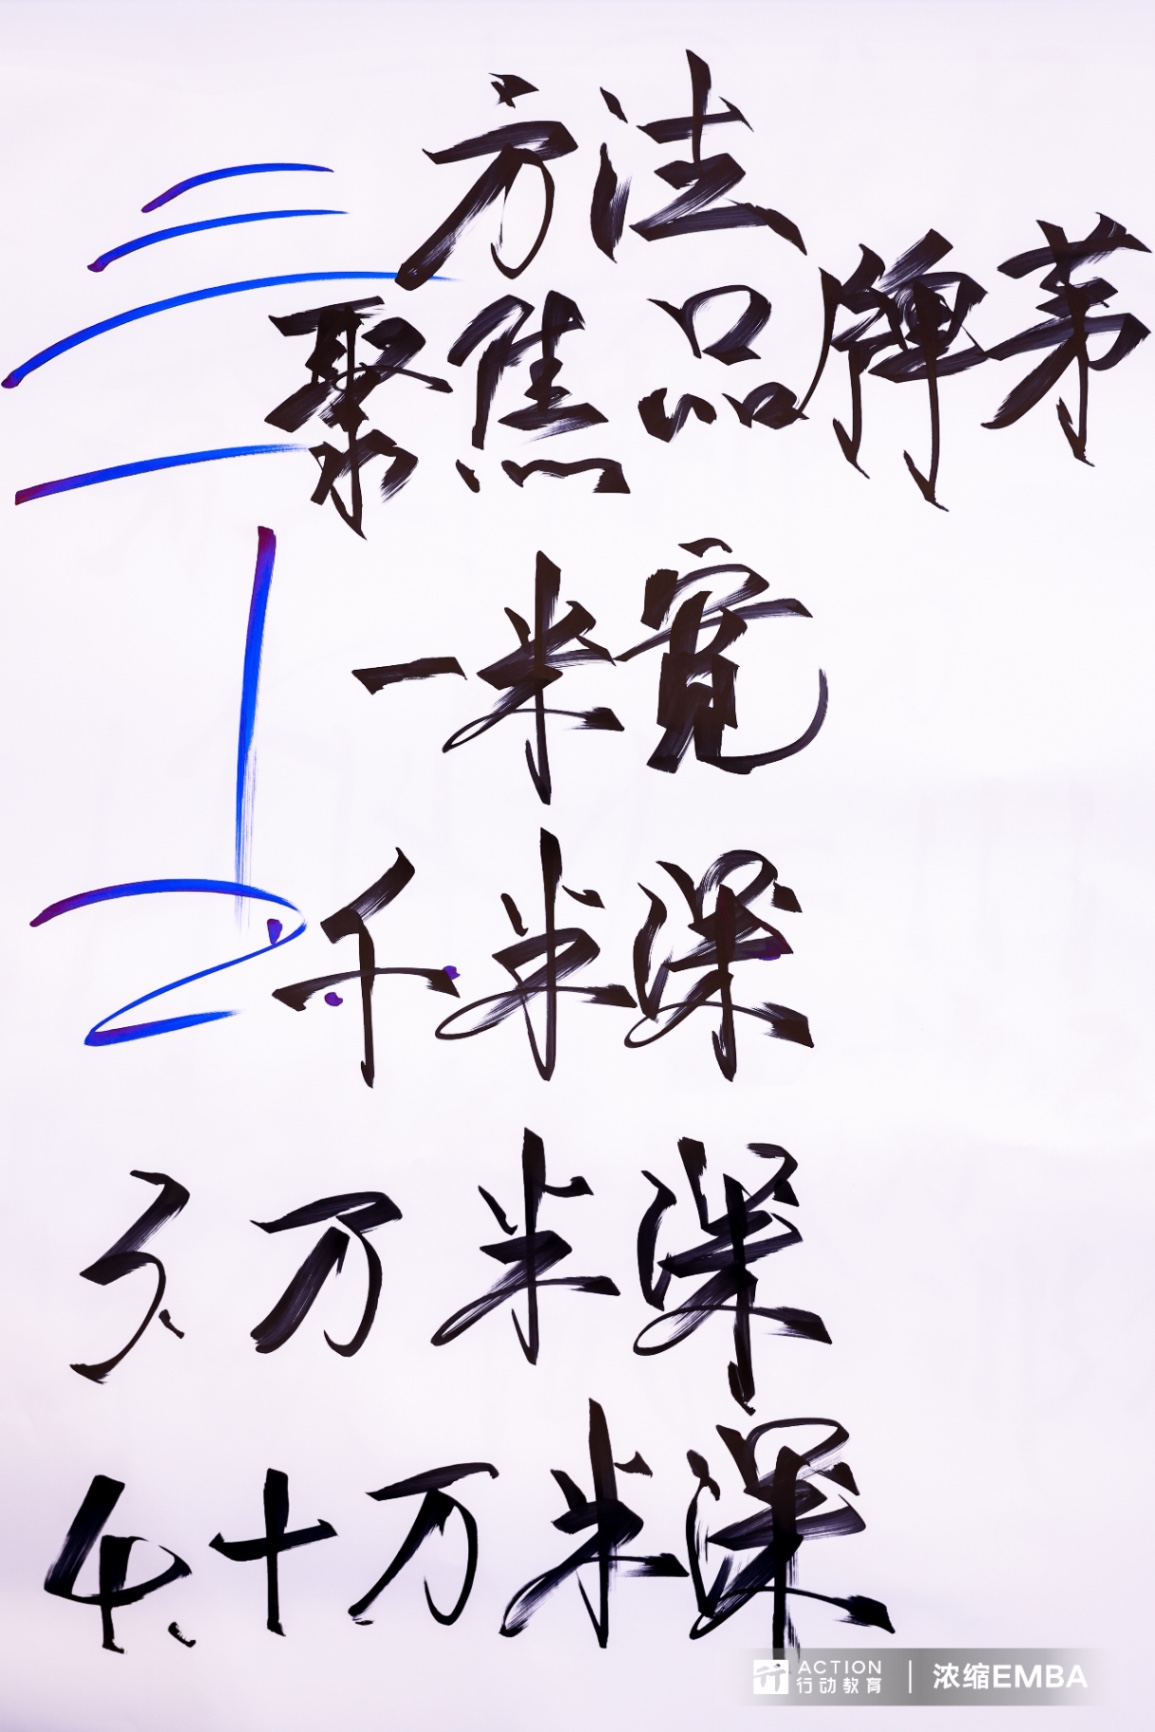 三 方法
一 聚焦品牌茅
1 一米宽
2. 千米深
3. 万米深
4. 十万米深
ACTION 行动教育 | 浓缩EMBA